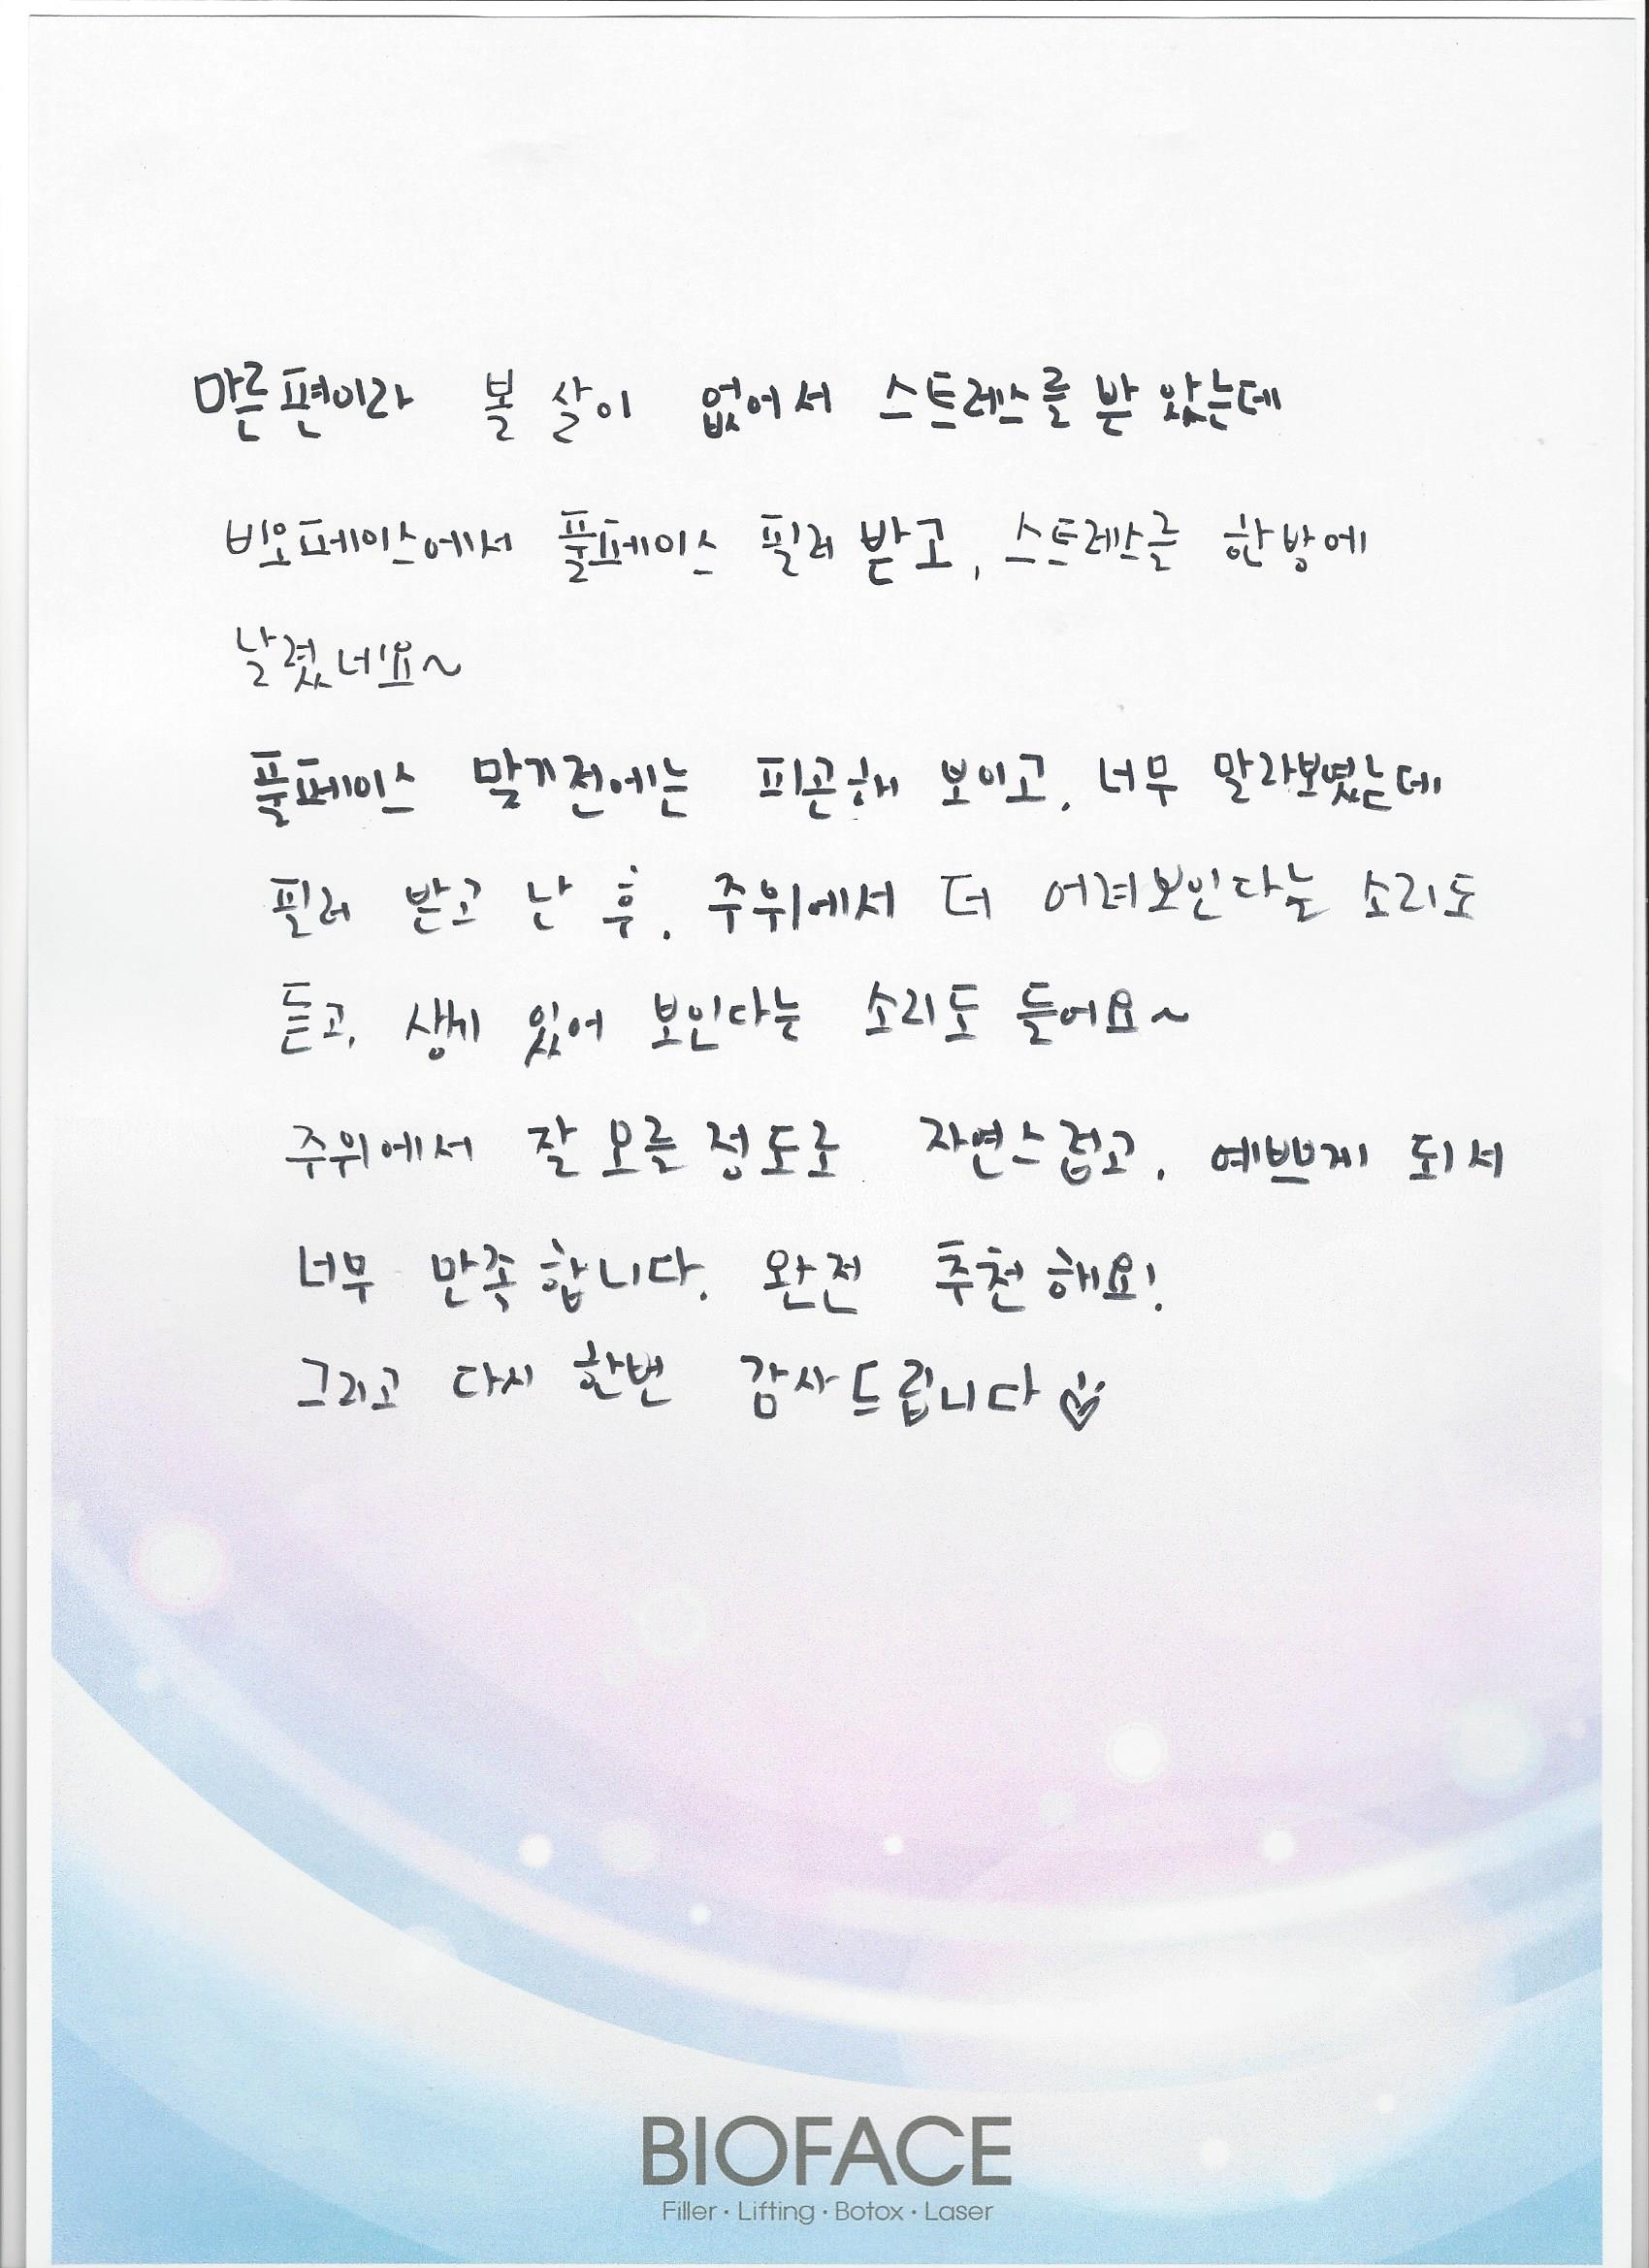 마른편이라 볼살이 없어서 스트레스를 받았는데
비오페이스에서 풀페이스 필러 받고, 스트레스를 한방에
날렸네요~
풀페이스 맞기전에는 피곤해 보이고, 너무 말라보였는데
필러 받고 난 후, 주위에서 더 어려보인다는 소리도
듣고, 생기 있어 보인다는 소리도 들어요~
주위에서 잘 모를정도로 자연스럽고, 예쁘게 되서
너무 만족합니다. 완전 추천해요!
그리고 다시 한번 감사드립니다♡
BIOFACE
Filler · Lifting · Botox · Laser